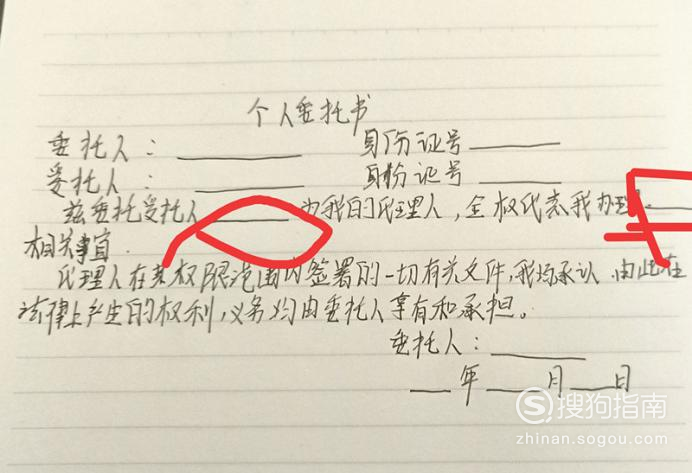 个人委托书
委托人：______ 身份证号______
受托人：______ 身份证号______
兹委托受托人______为我的代理人，全权代表我办理____
相关事宜.
代理人在其权限范围内签署的一切有关文件，我均承认，由此在
法律上产生的权利，义务均由委托人享有和承担。
委托人：______
___年____月___日
搜狗指南
zhinan.sogou.com